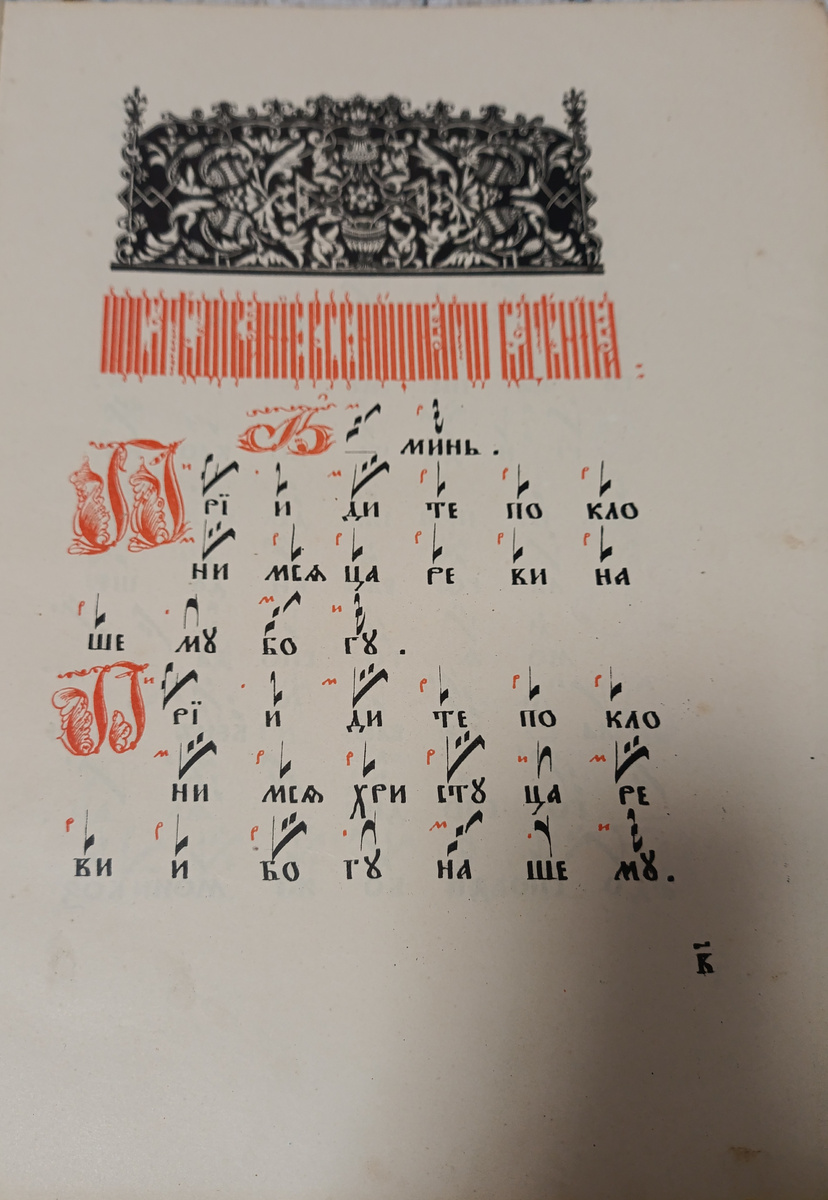 А МИНЬ .
П РЇ И ДИ ТЕ ПО КЛО
НИ МСѦ ЦА РЕ ВИ НА
ШЕ МꙊ БО ГꙊ .
П РЇ И ДИ ТЕ ПО КЛО
НИ МСѦ ХРИ СТꙊ ЦА РЕ
ВИ И БО ГꙊ НА ШЕ МꙊ .
В҃